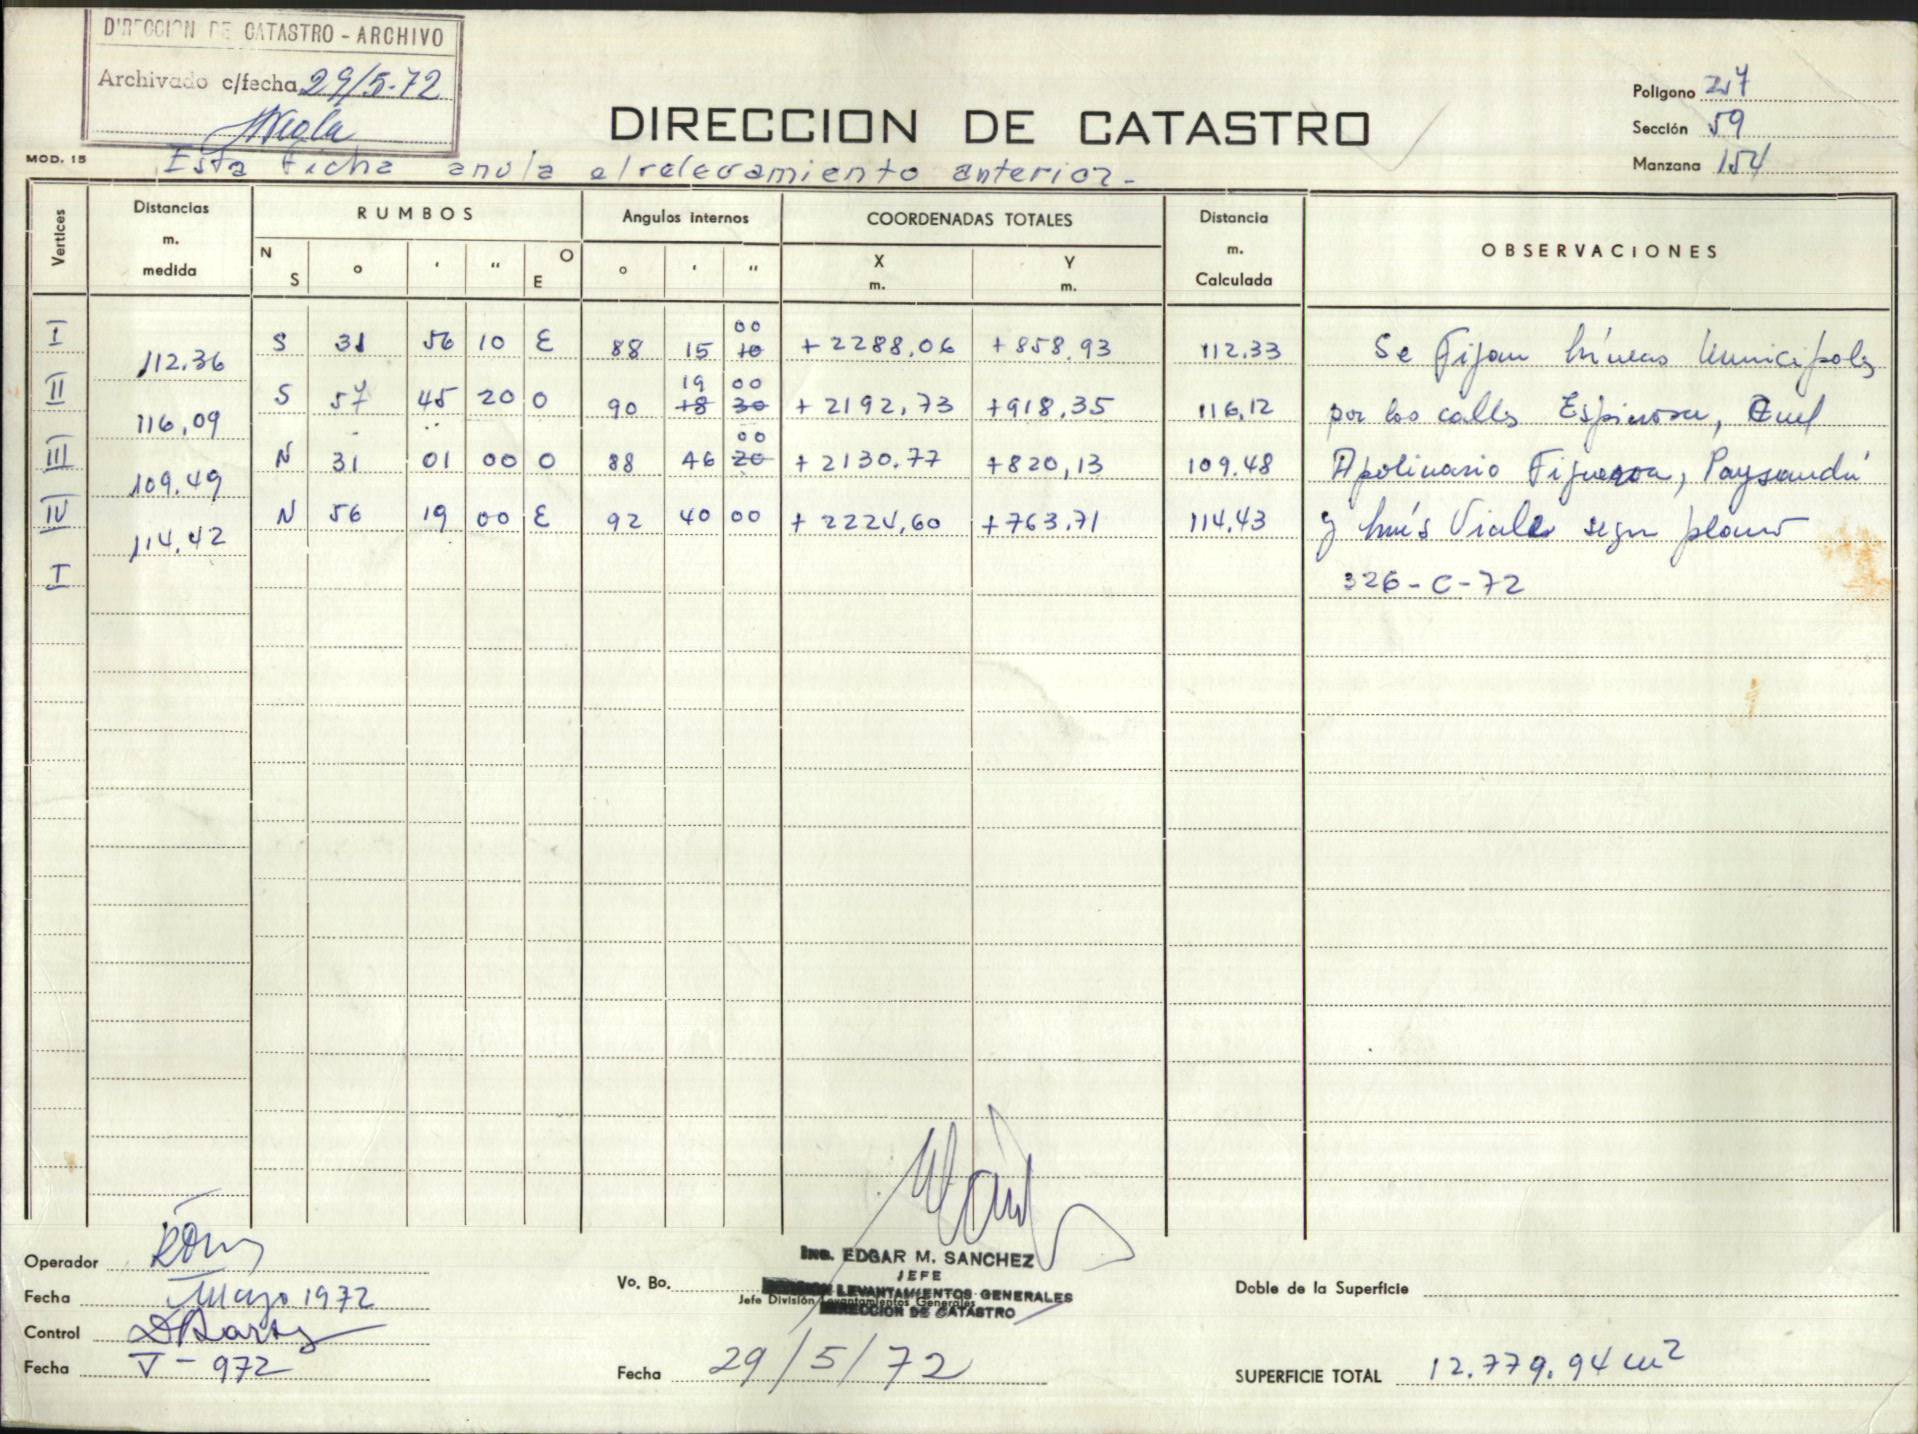 DIRECCION DE CATASTRO - ARCHIVO
Archivado c/fecha 29/5-72
DIRECCION DE CATASTRO
Polígono 217
Sección 59
Manzana 154
MOD. 15
Esta Ficha anula el relevamiento anterior.-
Vertices Distancias m. medida RUMBOS Angulos internos COORDENADAS TOTALES Distancia m. Calculada OBSERVACIONES
N S ° ' " O E ° ' " X m. Y m.
I S 31 56 10 E 88 15 10 00 +2288,06 +858,93 112.33 Se Fijan Líneas Municipales
112.36
II S 57 45 20 O 90 18 19 30 00 +2192,73 +918,35 116,12 por las calles Espinosa,
116,09
III N 31 01 00 O 88 46 20 00 +2130.77 +820,13 109.48 Apolinario Figueroa, Paysandú
109.49
IV N 56 19 00 E 92 40 00 +763,71 114.43 y Luis Viale segun plano
114.42
I 326-C-72
Operador
Fecha Mayo 1972
Control
Fecha V-972
Vo. Bo.
Ing. EDGAR M. SANCHEZ
JEFE
DIVISION LEVANTAMIENTOS GENERALES
Jefe División Levantamientos Generales
DIRECCION DE CATASTRO
Fecha 29/5/72
Doble de la Superficie
SUPERFICIE TOTAL 12.779.94 m2